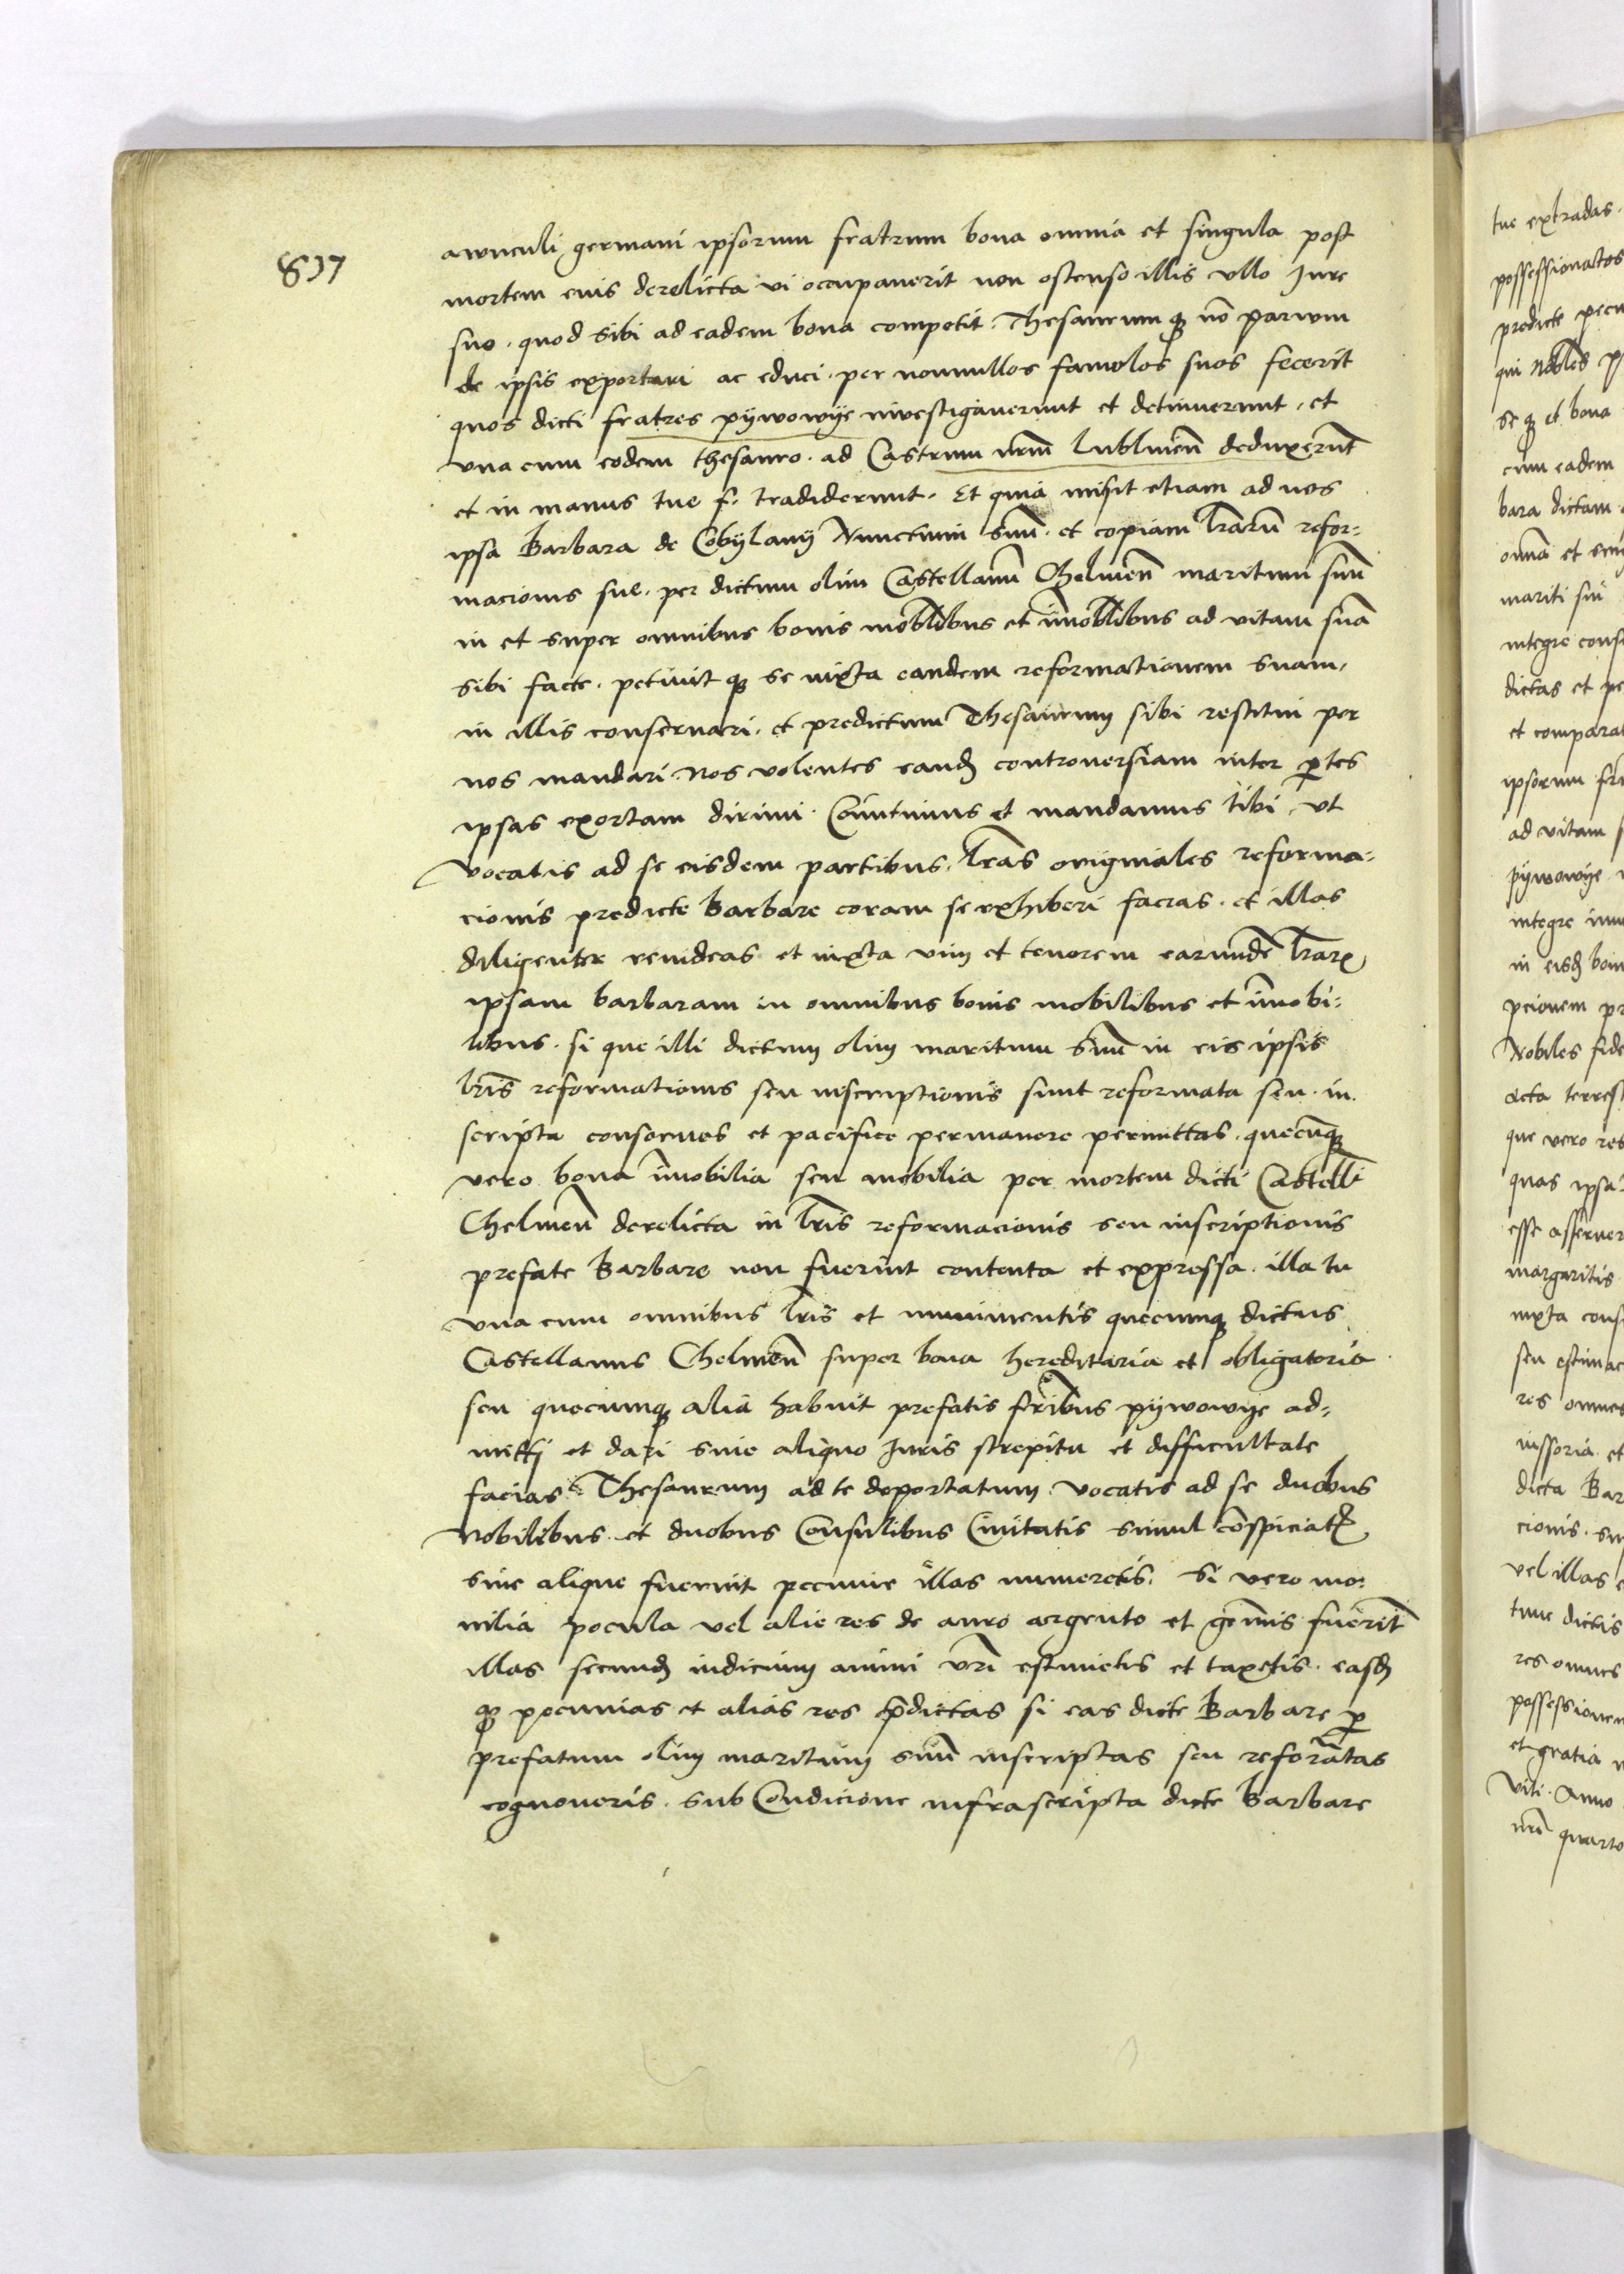 837
awnculi germani ipsorum fratrum bona omnia et singula post
mortem eius derelicta vi occupauerit non ostenso illis vllo Jure
suo . quod sibi ad eadem bona competit . Thesaurumq3 nō parwm
de ipsis exportari ac educi . per nonnullos famolos suos fecerit
quos dicti fratres pÿwowÿe investigauerunt et detinuerunt , et
vna cum eodem thesauro . ad Castrum nrm̄ lublineñ deduxerunt
et in manus tue f. tradiderunt . Et quia misit etiam ad nos
ipsa Barbara de Cobÿlanÿ Nunctium suū . et copiam lr̄arū refor-
macionis sue . per dictum olim Castellanū Chelmeñ maritum suū
in et super omnibus bonis mobl̄ibus et īmobl̄ibus ad vitam suā
sibi facte . petiuitq3 se iuxta eandem reformationem suam ,
in illis conseruari . et predictum Thesaurum sibi restitui per
nos mandari Nos volentes eand3 controuersiam inter p̄tes
ipsas exortam dirimi . Com̄ttimus et mandamus tibi , vt
vocatis ad se eisdem partibus . lr̄as originales reforma-
cionis predicte Barbare coram se exhiberi facias . et illas
diligenter reuideas et iuxta vim et tenorem earundē lr̄ar3
ipsam barbaram in omnibus bonis mobilibus et īmobi-
libus . si que illi dictum olim maritum suū in eis ipsis
lr̄is reformationis seu inscriptionis sunt reformata seu . in
scripta conserues et pacifice permanere permittas . quecūq3
vero bona īmobilia seu mobilia per mortem dicti Castell̄i
Chelmeñ derelicta in lr̄is reformacionis seu inscriptionis
prefate Barbare non fuerint contenta et expressa . illa tu
vna cum omnibus lr̄is et munimentis quecumq3 dictus
Castellanus Chelmeñ super bona hereditaria et obligatoria
seu quecumq3 alia habuit prefatis frībus pÿwowÿe ad-
mitti et dari sine aliquo Juris strepitu et difficultate
facias Thesaurum ad te deportatum . vocatis ad se duobus
Nobilibus . et duobus Consulibus Ciuitatis simul cōspiciat3
siue alique fuerint pecunie illas numeretis . Si vero mo-
nilia pocula vel alie res de auro argento et gem̄is fuerīt
illas secund3 iudicium animi vr̄i estimetis et taxetis . easd3
q3 pecunias et alias res p̄dictas si eas dicte Barbare p̄
prefatum olim maritum suū inscriptas seu reformātas
cognoueris . sub Condicione infrascripta dicte Barbare
tue extradas .
possessionatos
predicte pecu
qui Nobl̄es
seq3 et bona
cum eadem
bara dictam
omīa et
mariti sui
integre cons
dictas et pe
et compara
ipsorum fra
ad vitam
pÿwowÿe
integre
in eisd3 bon
pcionem pr
Nobiles fide
acta terres
que vero res
quas ipsa
esse asseruer
margaritis
iuxta cons
seu estimac
res omnes
et
dicta Bar
cionis . su
vel illas
tunc dictis
res omnes
possessionem
et gratia
viti . Anno
nr̄i quarto